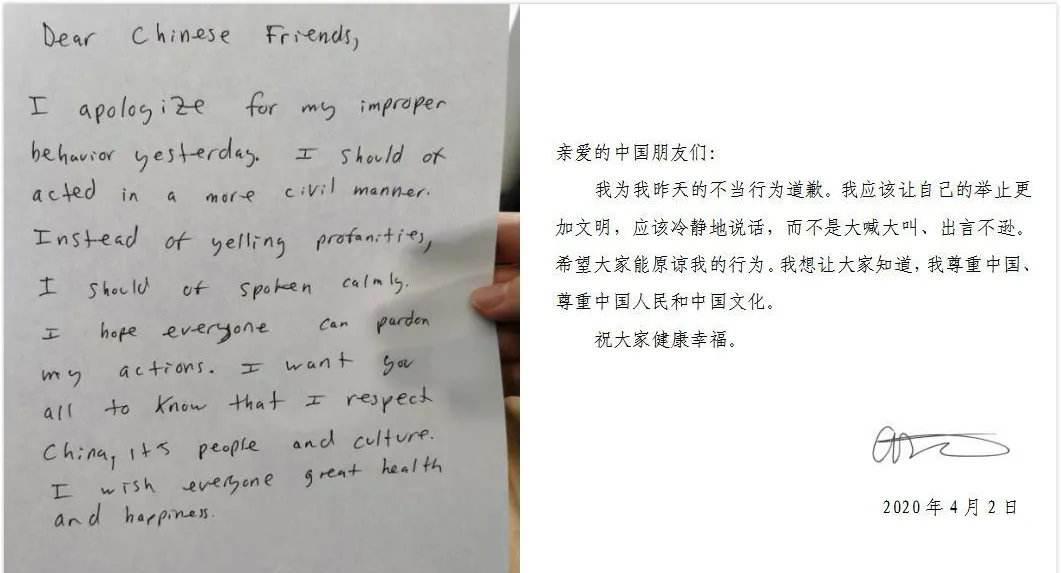 Dear Chinese Friends,
I apologize for my improper
behavior yesterday. I should of
acted in a more civil manner.
Instead of yelling profanities,
I should of spoken calmly.
I hope everyone can pardon
my actions. I want you
all to know that I respect
China, its people and culture.
I wish everyone great health
and happiness.
亲爱的中国朋友们：
我为我昨天的不当行为道歉。我应该让自己的举止更
加文明，应该冷静地说话，而不是大喊大叫、出言不逊。
希望大家能原谅我的行为。我想让大家知道，我尊重中国、
尊重中国人民和中国文化。
祝大家健康幸福。
2020年4月2日